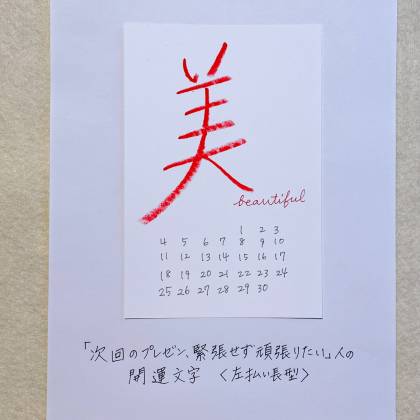 美
beautiful
1 2 3
4 5 6 7 8 9 10
11 12 13 14 15 16 17
18 19 20 21 22 23 24
25 26 27 28 29 30
「次回のプレゼン、緊張せず頑張りたい」人の
開運文字 〈左払い長型〉